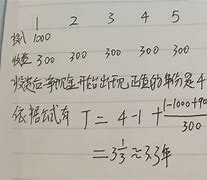 1 2 3 4 5
投入 1000
收益 300 300 300 300 300
净现金开始出现正值的年份是4
依据公式有 T = 4-1+ |-1000+90
300
= 3 1/3 ≈ 3.3年